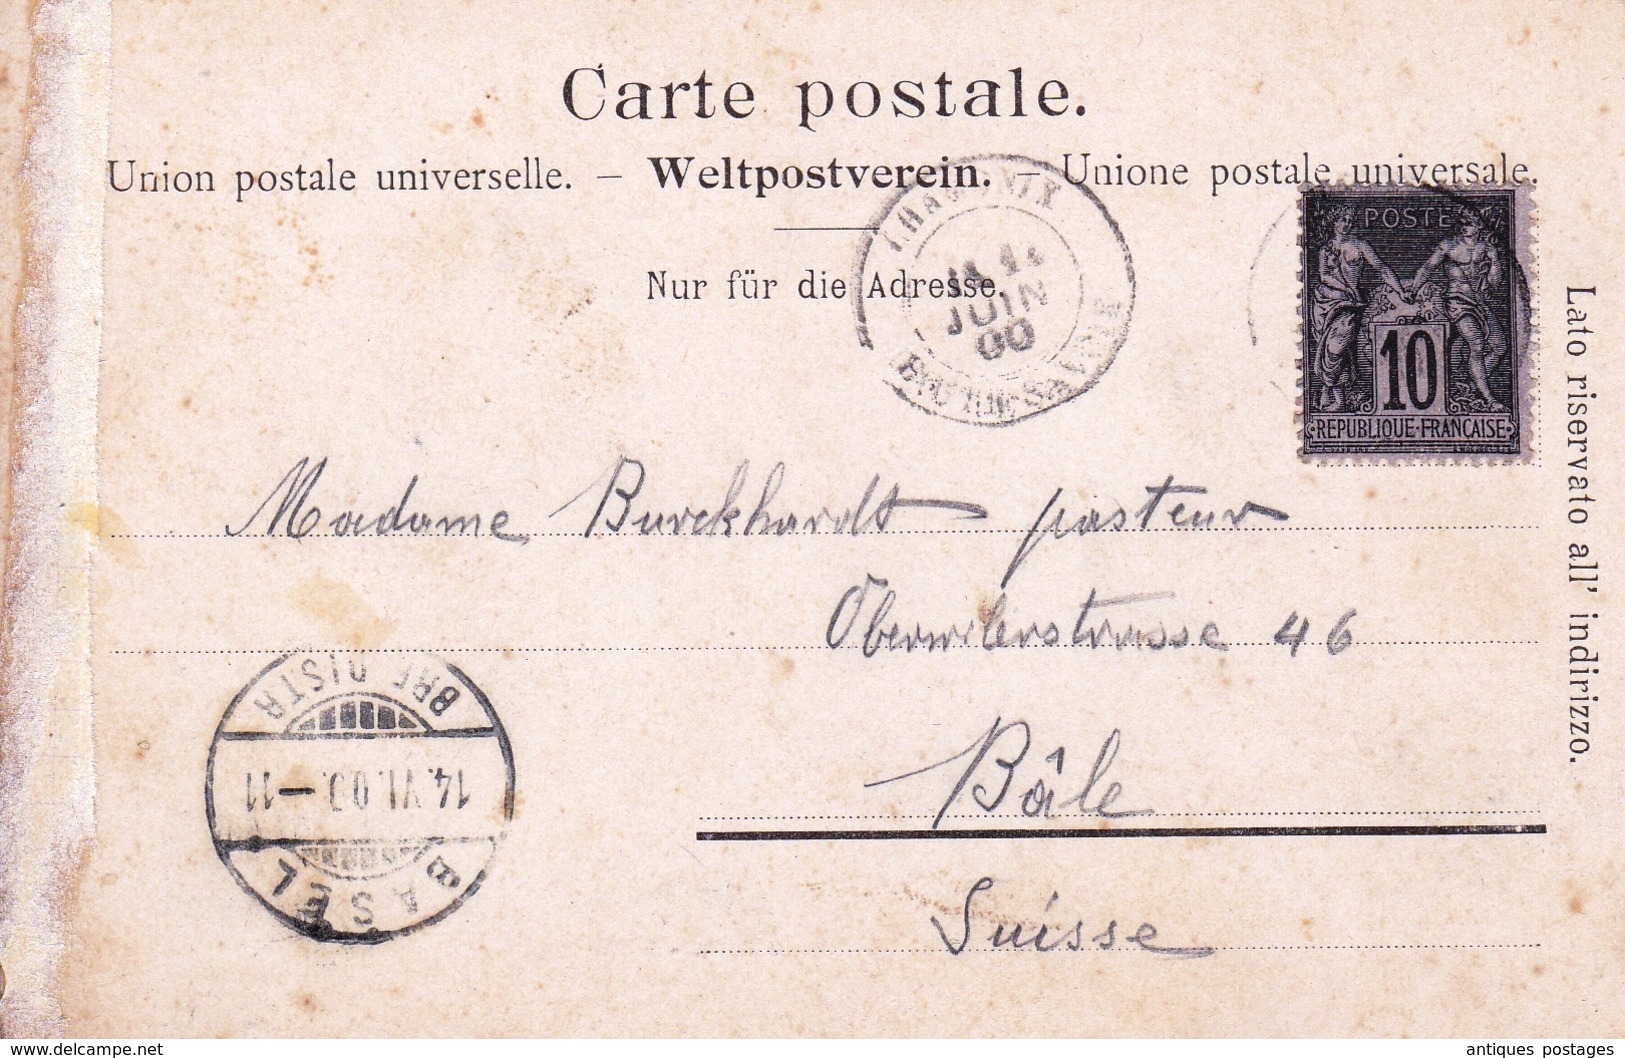 Carte postale.
Union postale universelle. – Weltpostverein. – Unione postale universale.
Nur für die Adresse.
CHAMONIX
JUIN
00
HTE SAVOIE
POSTES
10
REPUBLIQUE·FRANÇAISE
Lato riservato all' indirizzo.
Madame Burckhardt pasteur
Oberwilerstrasse 46
Bâle
Suisse
BASEL
14.VI.00.–11
BRF DISTR
www.delcampe.net
antiques postages